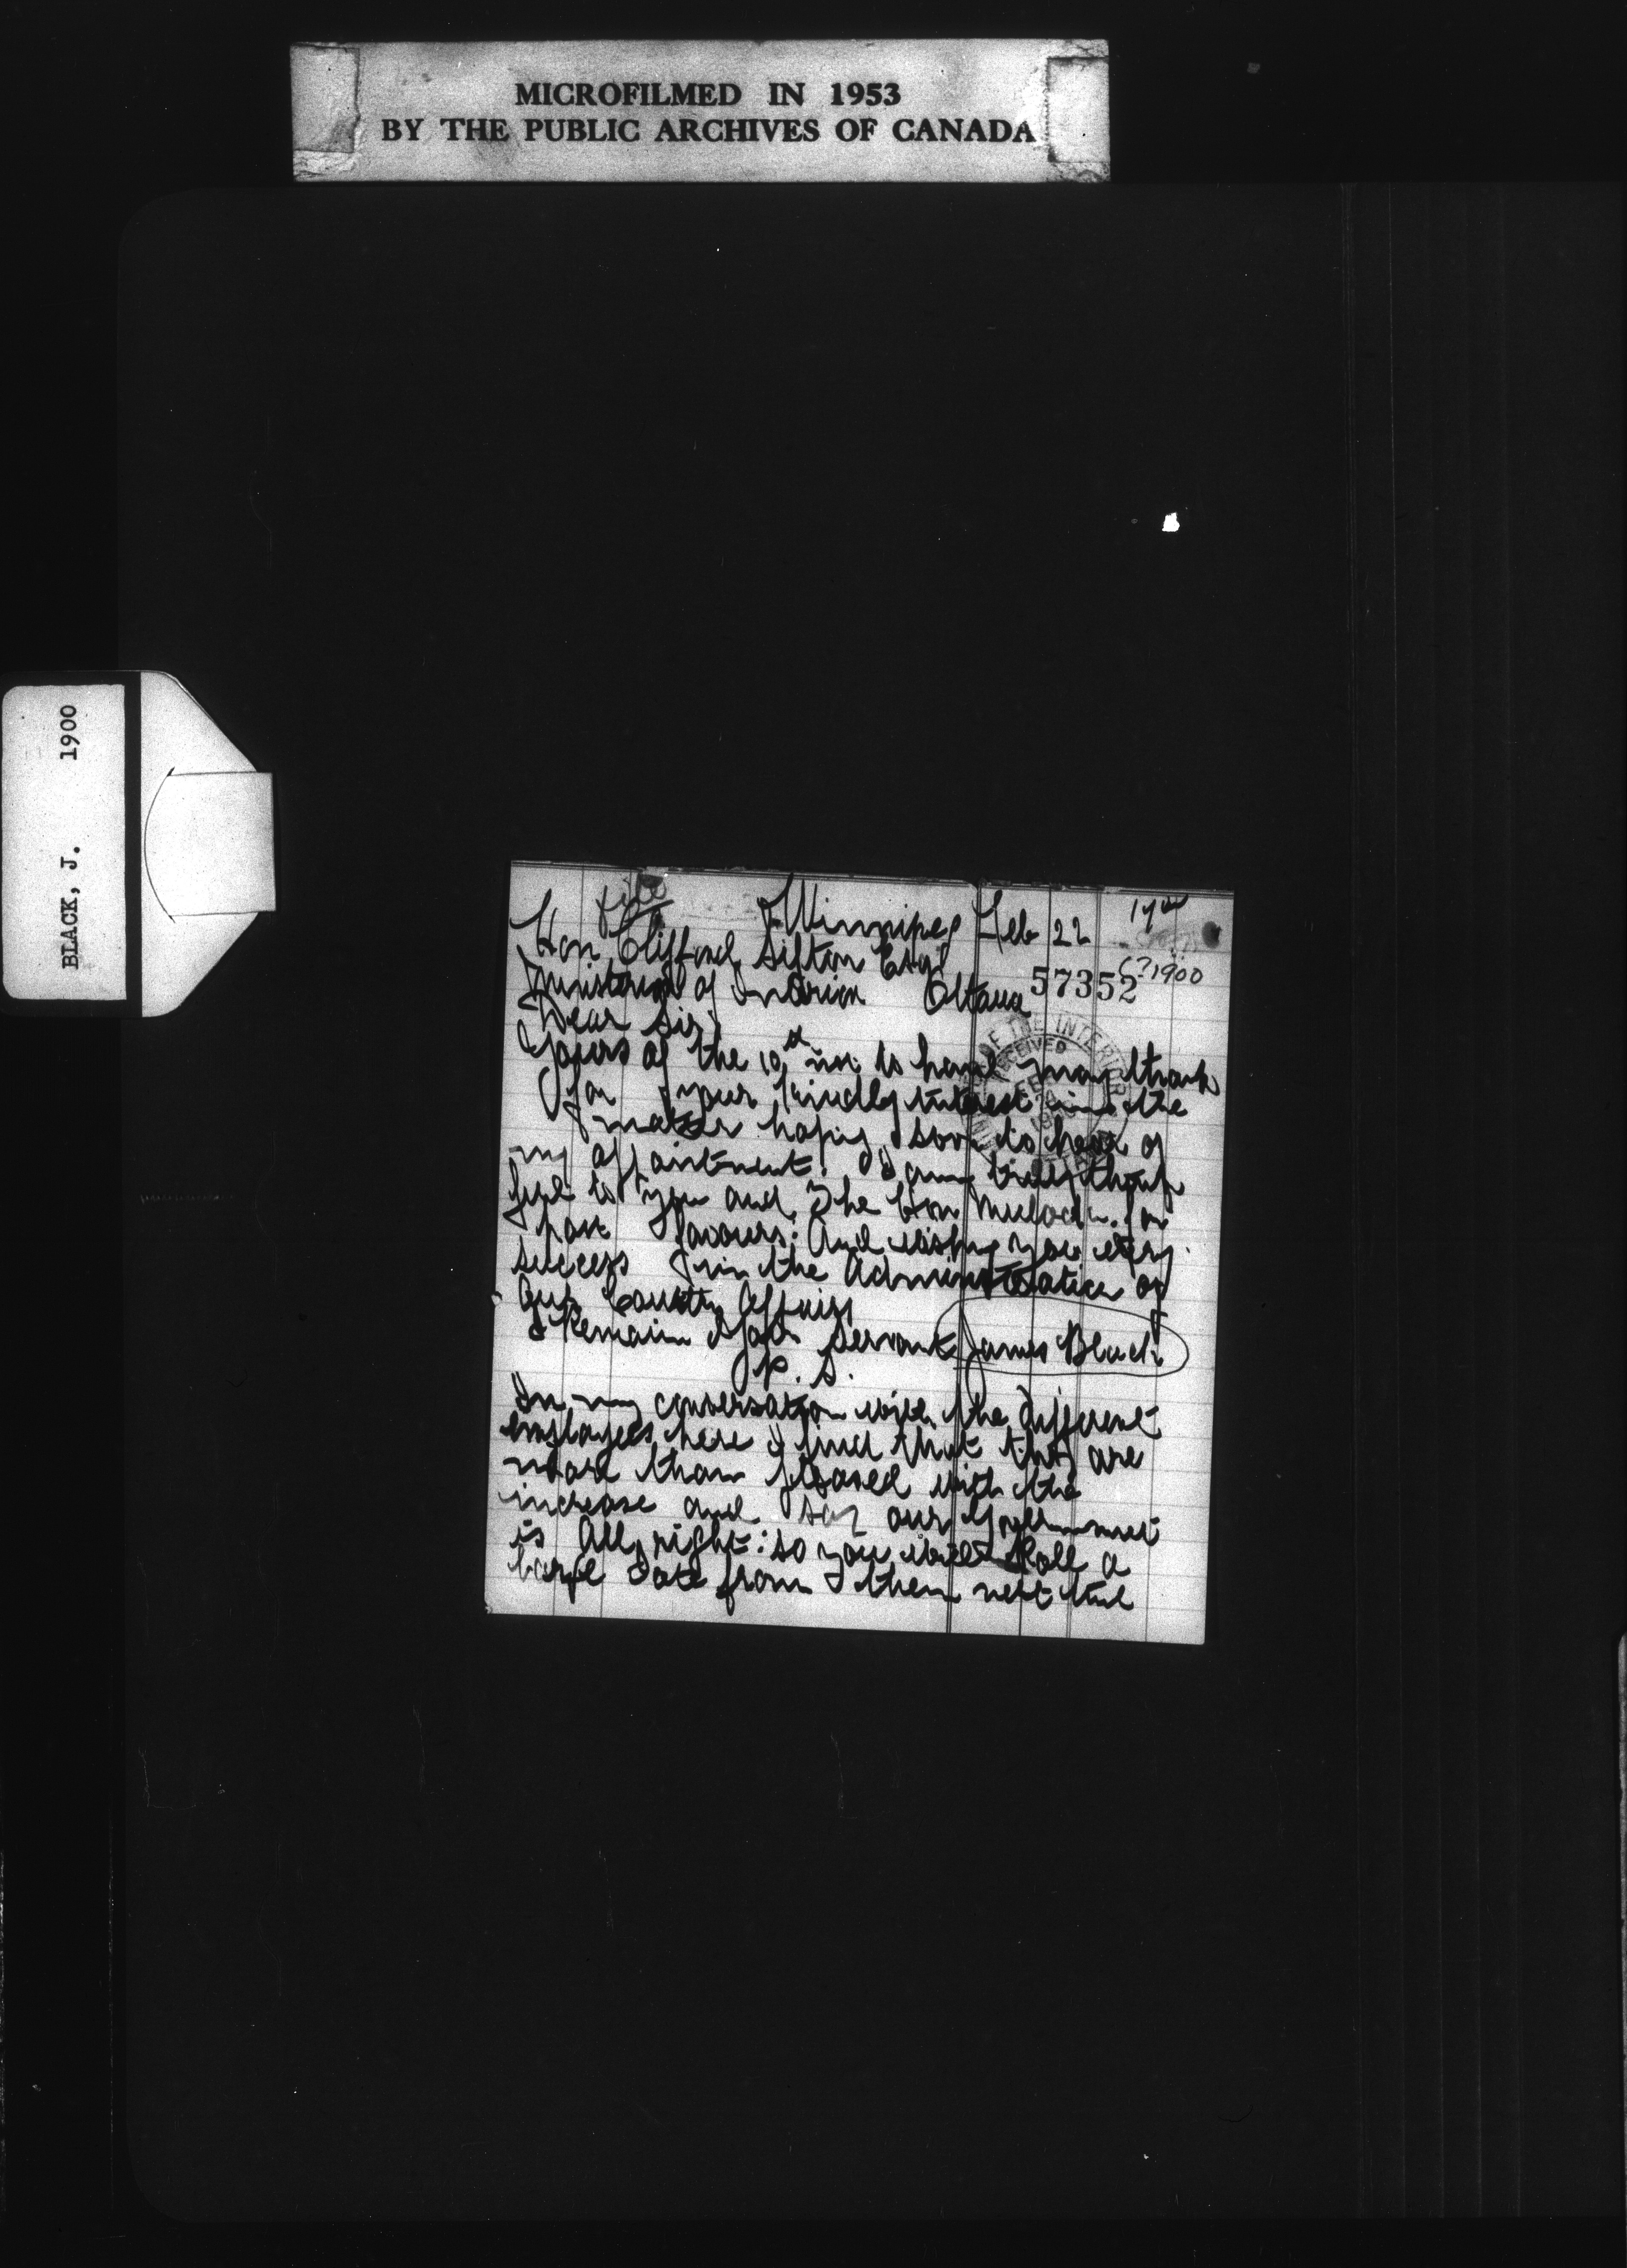 MICROFILMED IN 1953
BY THE PUBLIC ARCHIVES OF CANADA
BLACK, J. 1900
file
Winnipeg Feb 22
(?1900
Hon Clifford Sifton Esq
57352
of Ottawa
Dear Sir
Yours of the 10 to hand many thank
for your kindly interest in the
matter hoping soon to hear of
my appointment. I am truly thank
full to you and The Hon Mulock for
past favours: And wishing you every
success in the Administration of
Our Country Affairs
I Remain Servant James Black
P. S.
In my conversation with the different
employees here I find that they are
more than pleased with the
increase and say our Government
is All right: so you will Poll a
large vote from them next time
OF THE INTERIOR
RECEIVED